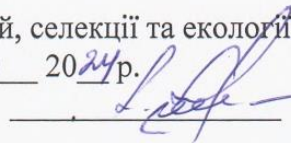 й, селекції та екології
___ 2024р.